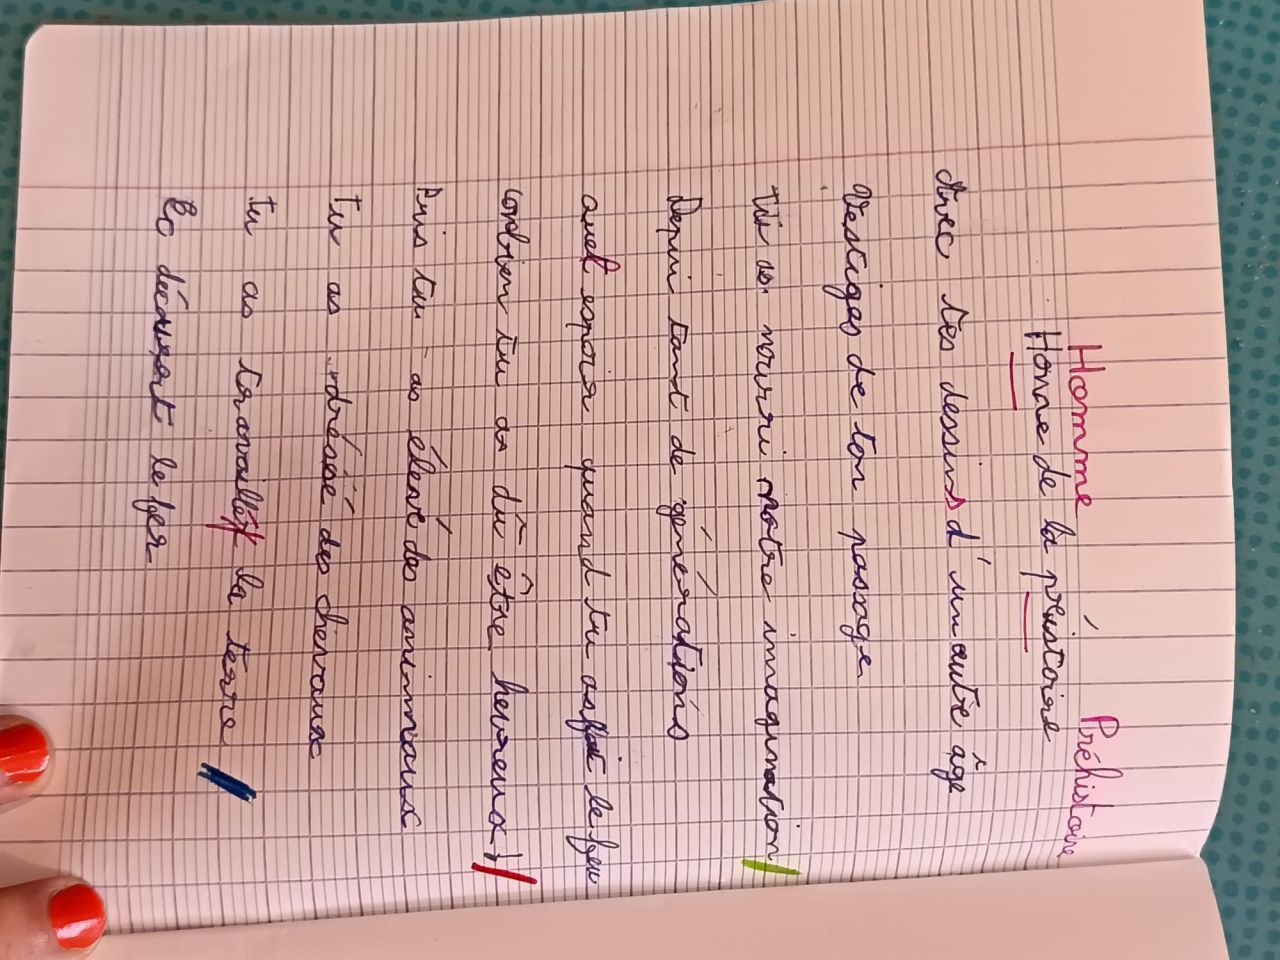 Homme Préhistoire
Homne de la préistoire
Avec tes dessins d'un autre âge
Vestiges de ton passage
Tu as nourri notre imagination
Depui tant de générations
quel espoir quand tu as fait le feu
combien tu as dû être heureux !
Puis tu as élevé des animaux
Tu as dréssé des chevaux
tu as travaillé la terre
Et découvert le fer